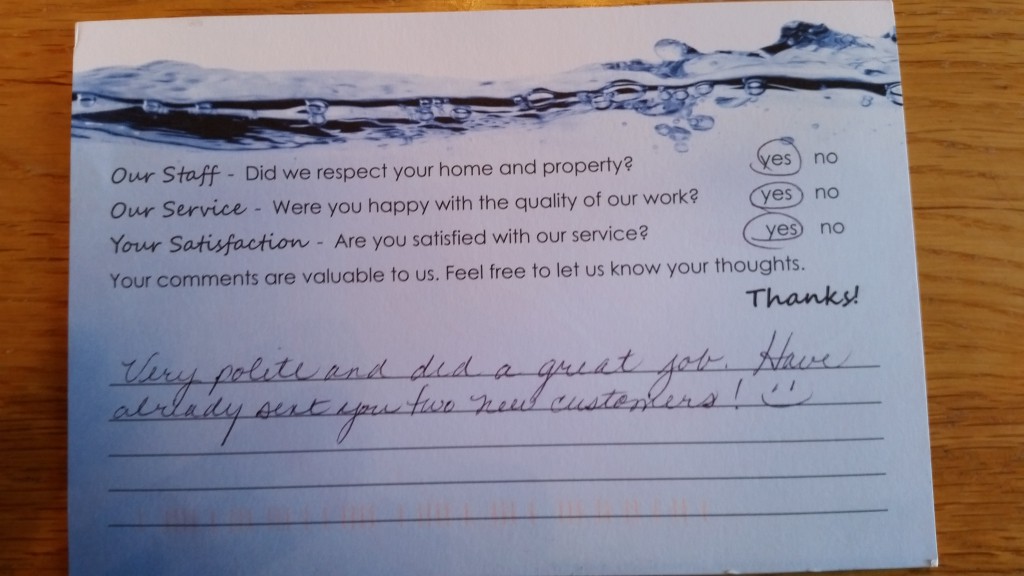 Our Staff - Did we respect your home and property? yes no
Our Service - Were you happy with the quality of our work? yes no
Your Satisfaction - Are you satisfied with our service? yes no
Your comments are valuable to us. Feel free to let us know your thoughts.
Thanks!
Very polite and did a great job. Have
already sent you two new customers! :)